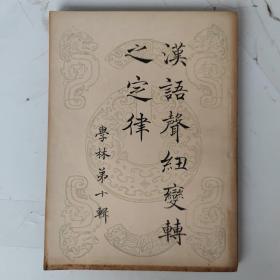 漢語聲紐變轉
之定律
學林第十輯